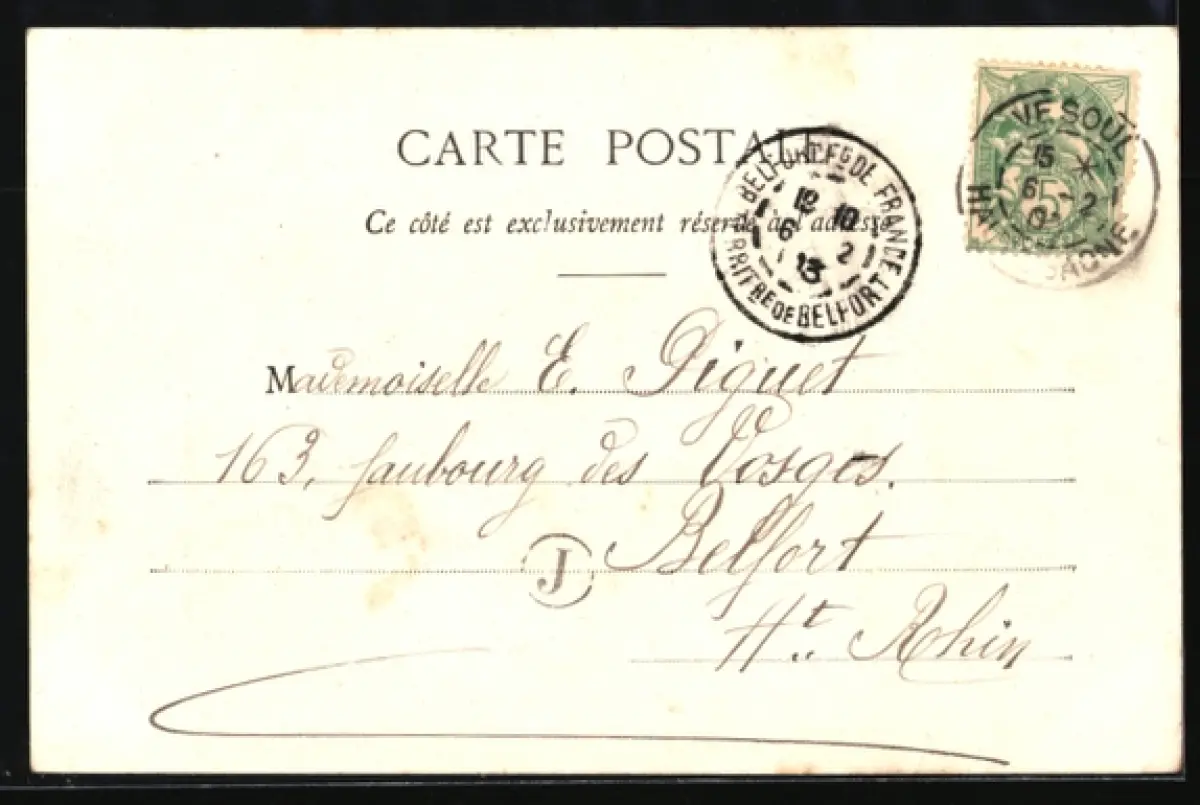 CARTE POSTALE
Ce côté est exclusivement réservé à l'adresse
BELFORT FG DE FRANCE
12 10
6 2
13
TERRITRE DE BELFORT
VESOUL
15 *
6 - 2
SAONE
5
Mademoiselle E. Piguet
163, faubourg des Vosges.
J
Belfort
Ht. Rhin